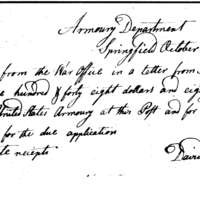 Armoury Department
Springfield October
from the War Office in a letter from
hundred & forty eight dollars and
United States Armoury at this Post and for
for the due application
receipts
David